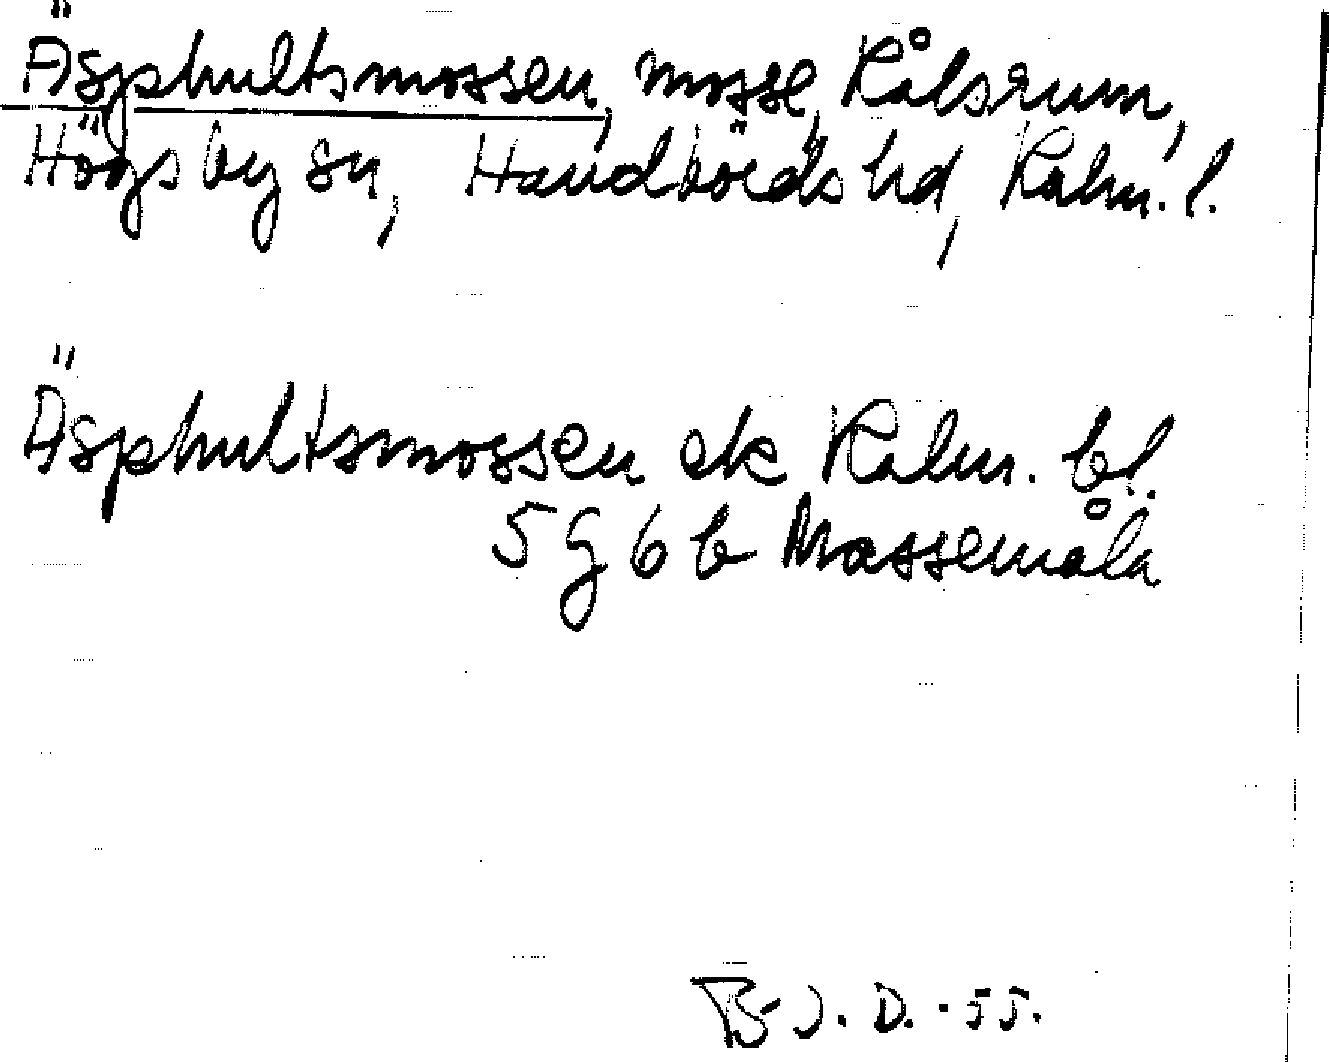 Äsphultsmossen, mosse, Kålsrum,
Högsby sn, Handbörds hd, Kalm. l.
Äsphultsmossen ek Kalm. bl.
5 G 6 b Mossemåla
B-J. D. -55.